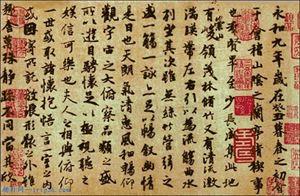 永和九年歲在癸丑暮春之初會
于會稽山陰之蘭亭脩稧事
也群賢畢至少長咸集此地
有崇山峻領茂林脩竹又有清流激
湍暎帶左右引以為流觴曲水
列坐其次雖無絲竹管絃之
盛一觴一詠亦足以暢敘幽情
是日也天朗氣清惠風和暢仰
觀宇宙之大俯察品類之盛
所以遊目騁懷足以極視聽之
娛信可樂也夫人之相與俯仰
一世或取諸懷抱悟言一室之內
或因寄所託放浪形骸之外雖
趣舍萬殊靜躁不同當其欣